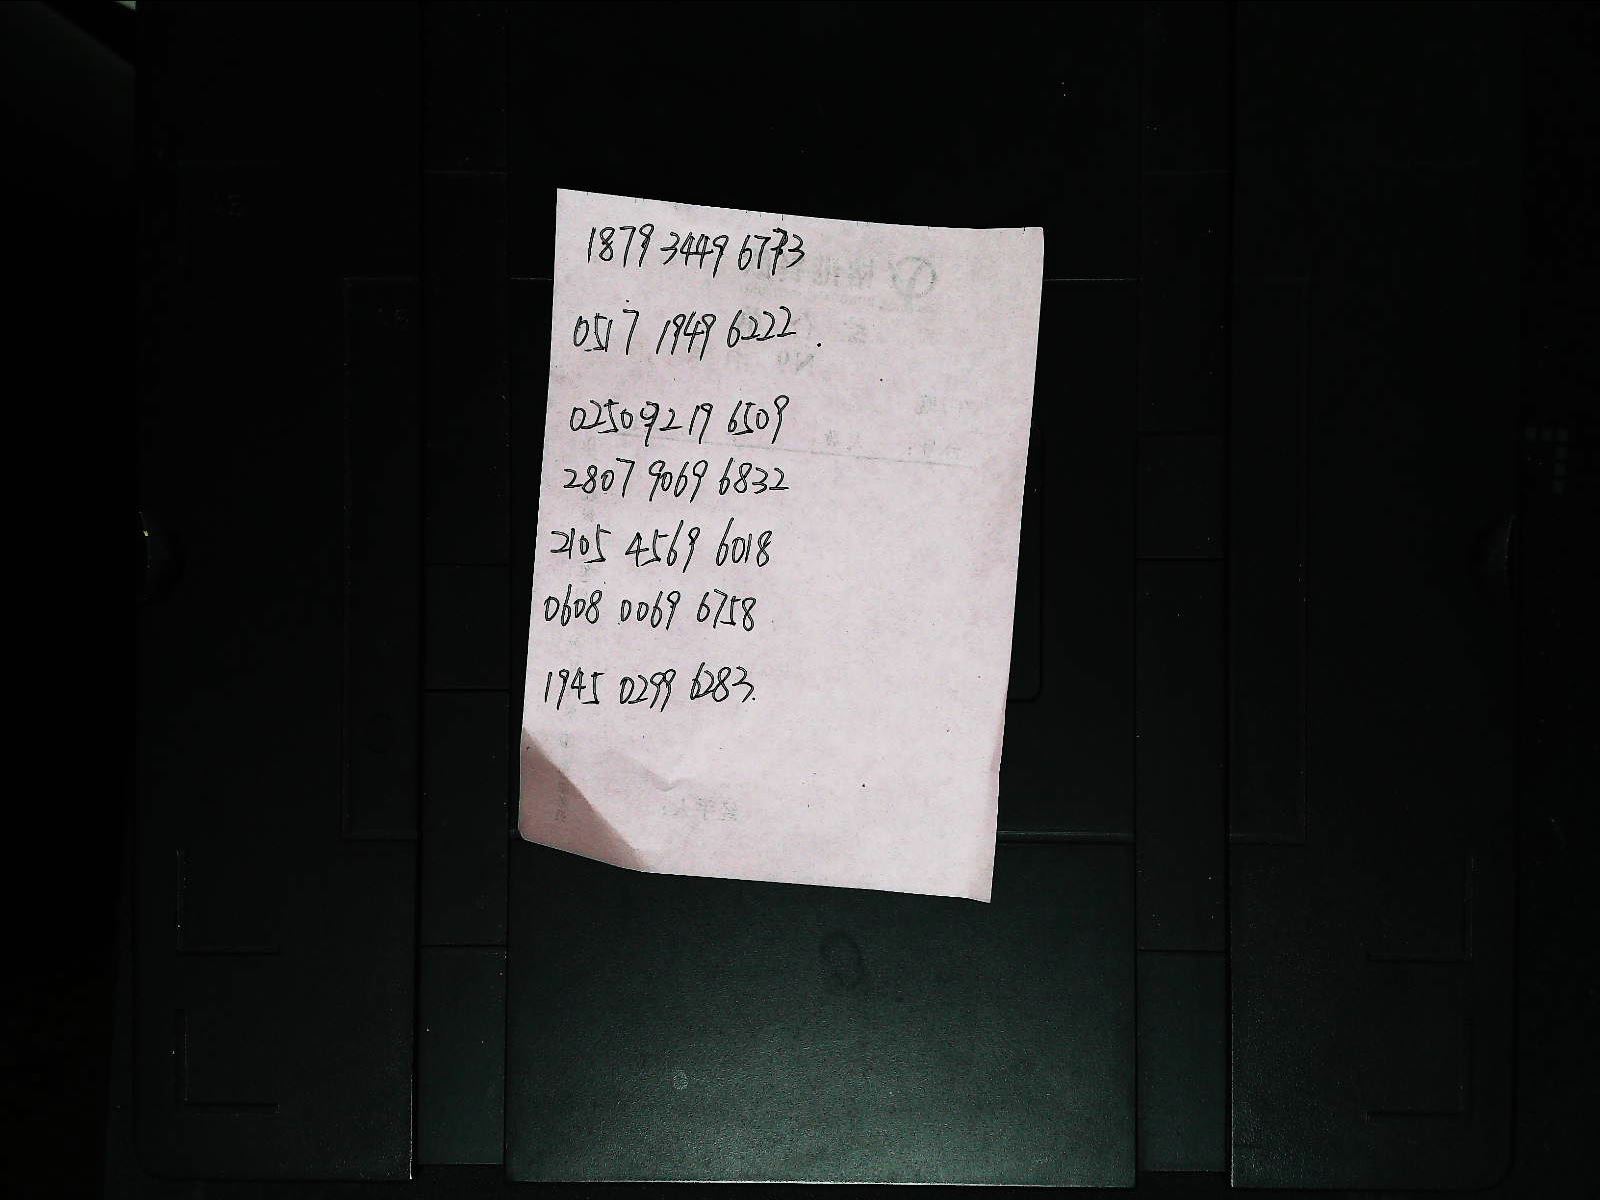 1879 3449 6773
0517 1949 6222.
0250 9219 6509
2807 9069 6832
2105 4569 6018
0608 0069 6758
1945 0299 6283.